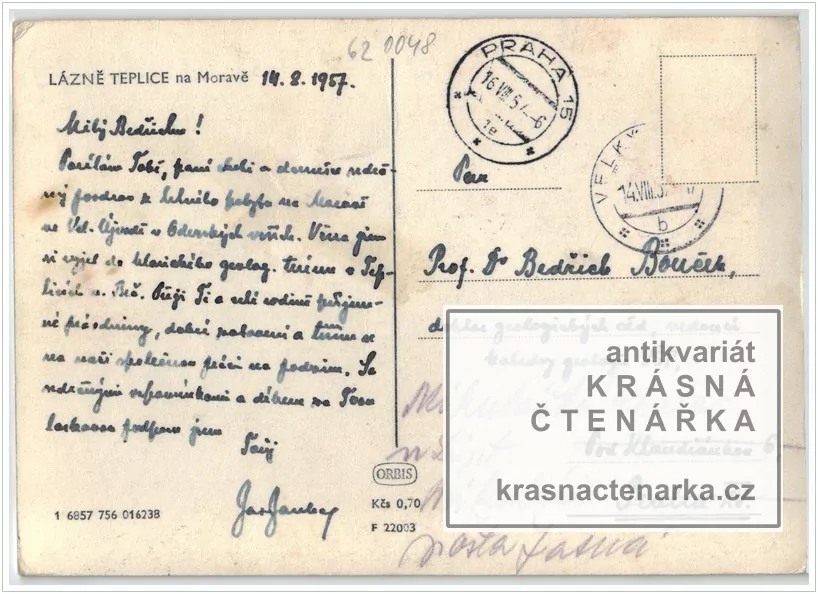 62 0048
LÁZNĚ TEPLICE na Moravě 14. 8. 1957.
Milý Bedřichu!
Posílám Tobě, paní choti a
pozdrav z letního pobytu na Moravě
ve Vel. Újezdě v Oderských vrších. Včera jsem
si vyjel do klasického geolog. terénu v Tep-
licích n. Beč. Přeji Ti a celé rodině příjem-
né prázdniny, dobré zotavení a těším se
na naši společnou práci na podzim. Se
srdečnými vzpomínkami a díkem za Tvou
laskavou podporu jsem
Tvůj
1 6857 756 016238
ORBIS
Kčs 0,70
F 22003
PRAHA 15
16.VIII.57.-6
1e
VELK
14.VIII.57
b
Pan
Prof. Dr Bedřich Bouček,
geologických věd, vedoucí
katedry geologie
Pod Klaudiánkou 6
Praha XV.
pošta Jasná
antikvariát
KRÁSNÁ
ČTENÁŘKA
krasnactenarka.cz